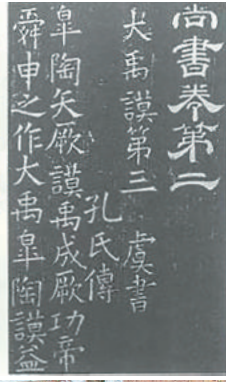 尚書卷第二
大禹謨第三 虞書
孔氏傳
皐陶矢厥謨禹成厥功帝
舜申之作大禹皐陶謨益